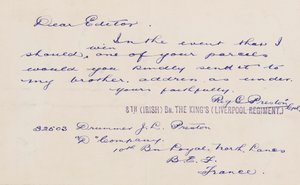 Dear Editor.
In the event that I
should win one of your parcels
would you kindly send it to
my brother. address as under.
yours faithfully.
Preston
8TH (IRISH) BN. THE KING'S (LIVERPOOL REGIMENT)
32503 Drummer J. L. Preston
"D" Company.
10th Bn. Loyal North Lancs
B. E. F.
France.